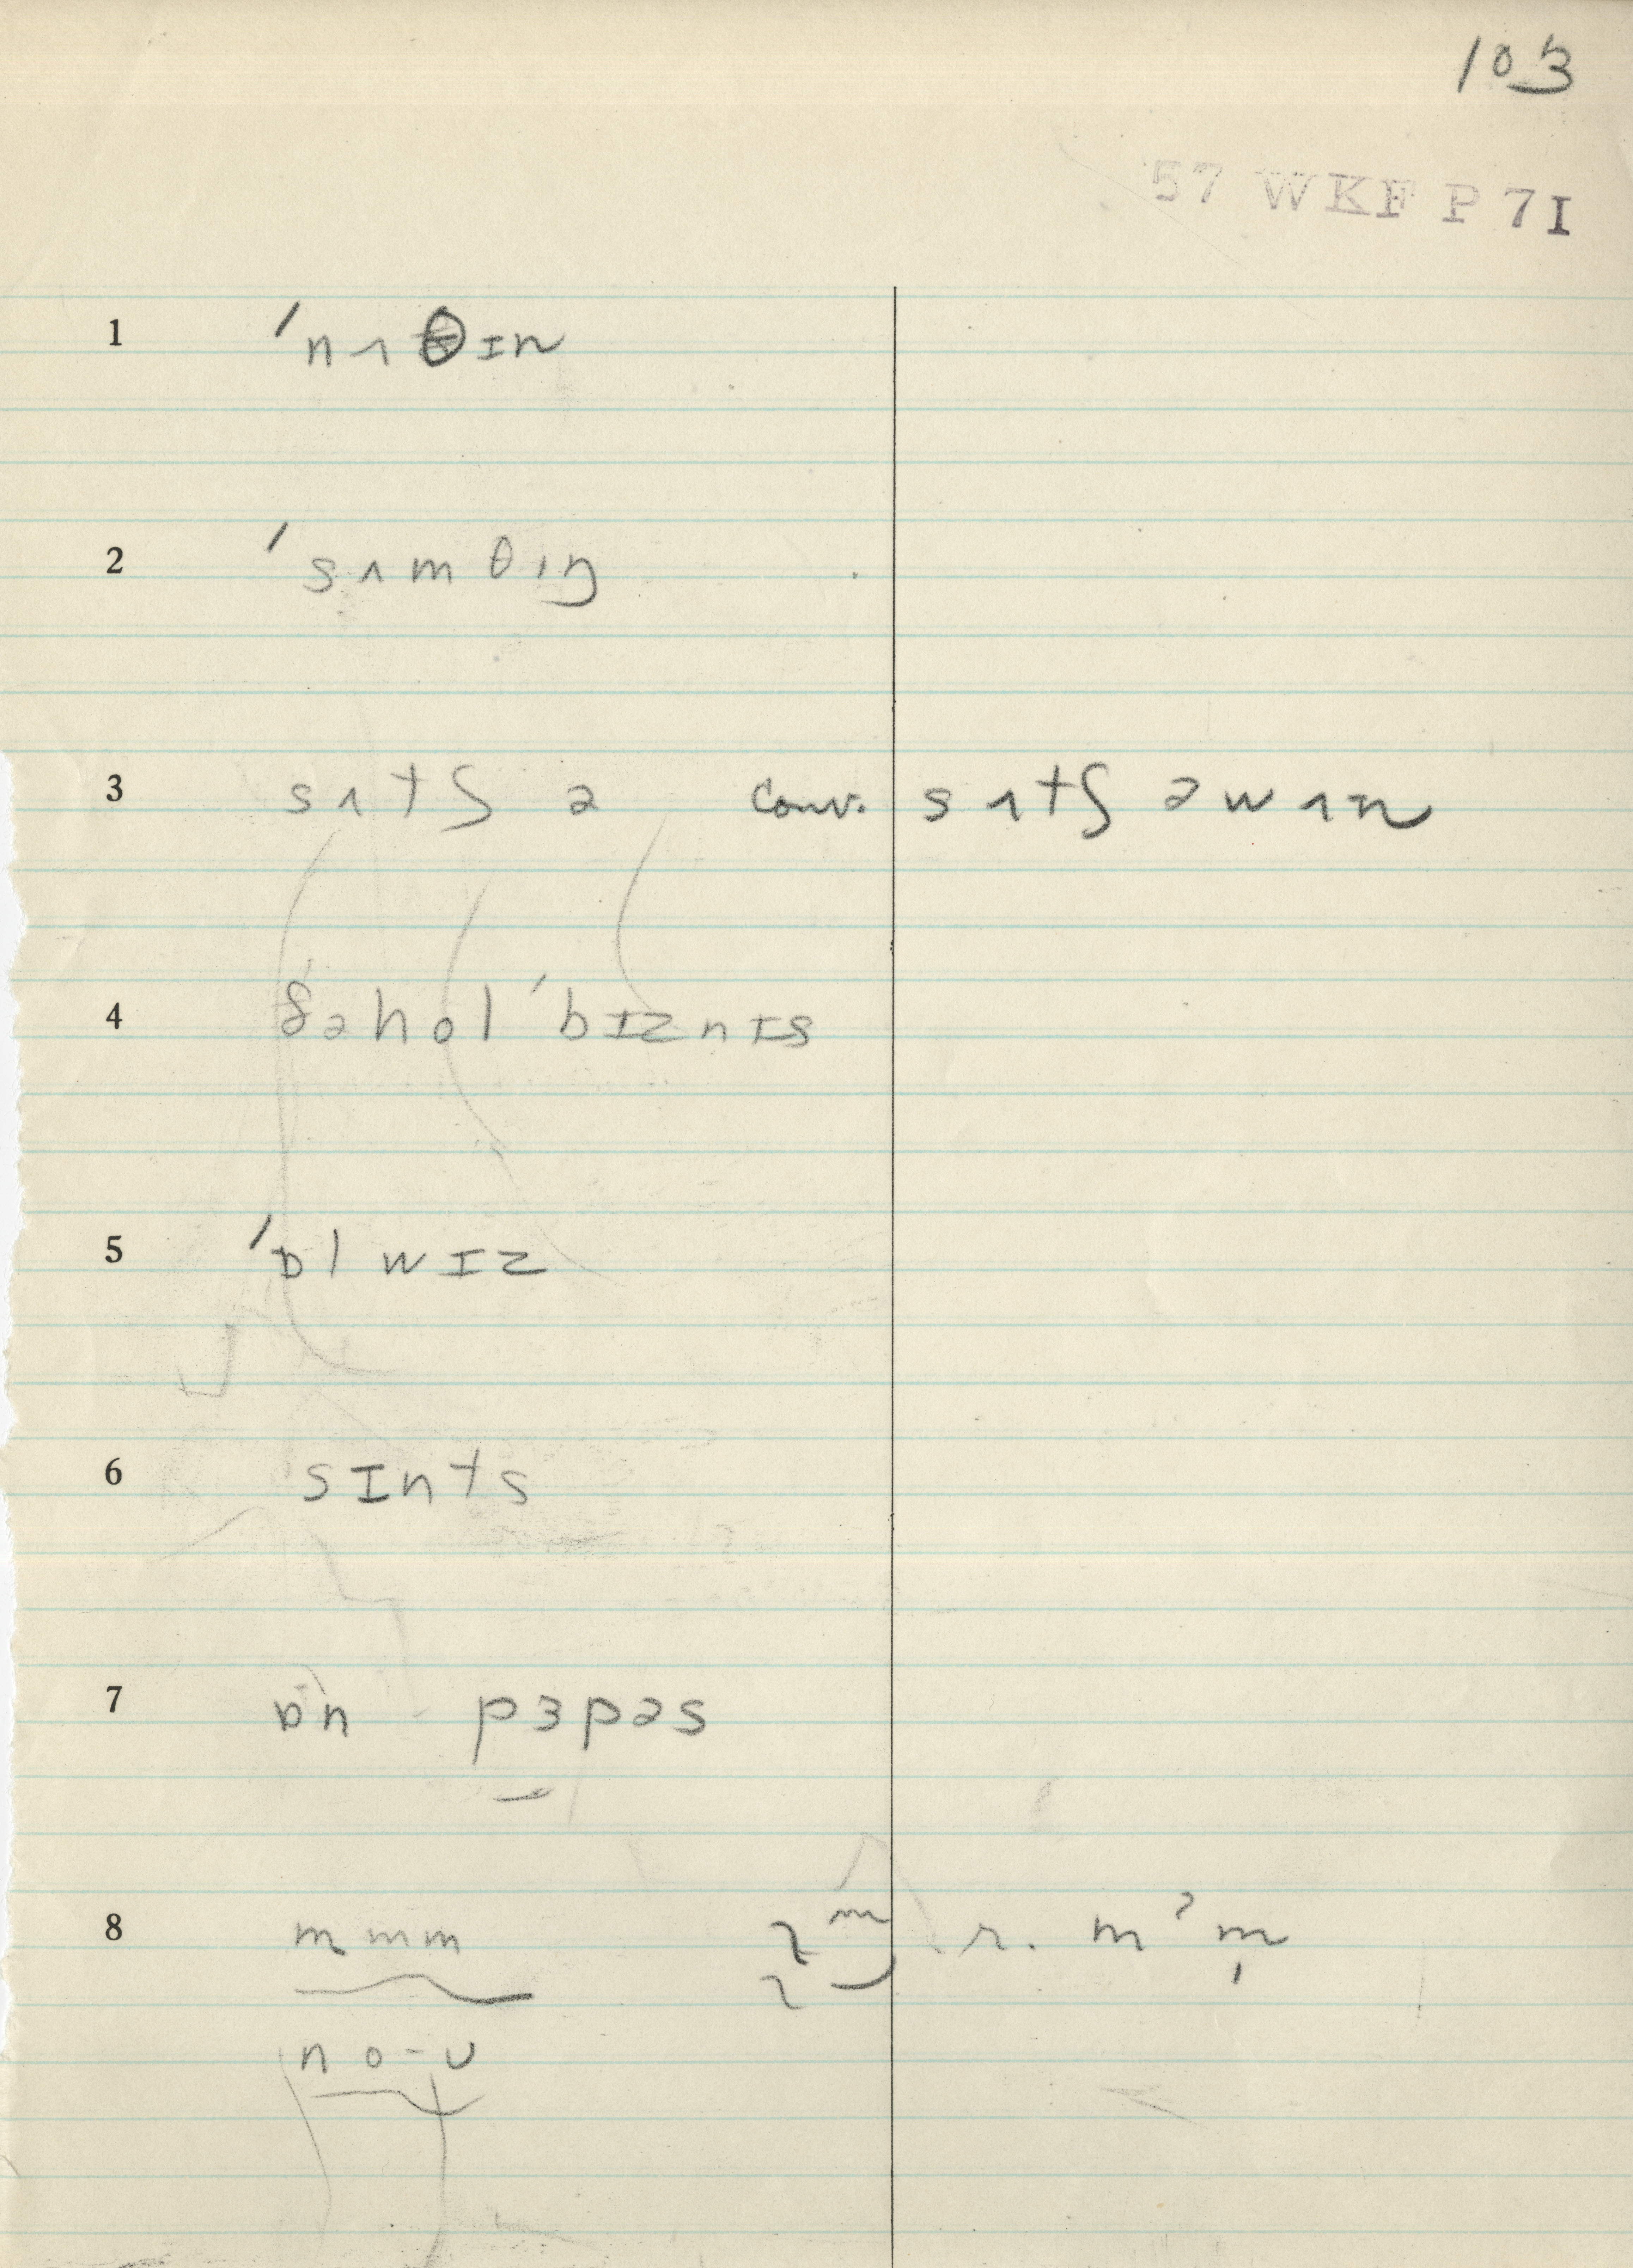 103
57 WKF P 7I
1 ˈnʌθɪn
2 ˈsʌmθɪŋ
3 sʌtʃ ə conv. sʌtʃ əwʌɪn
4 ðəhol ˈbɪznɪs
5 ˈɒlwɪz
6 sɪnts
7 ɒn pɜpəs
8 mmm m r. mˀm̩
no-ʊ